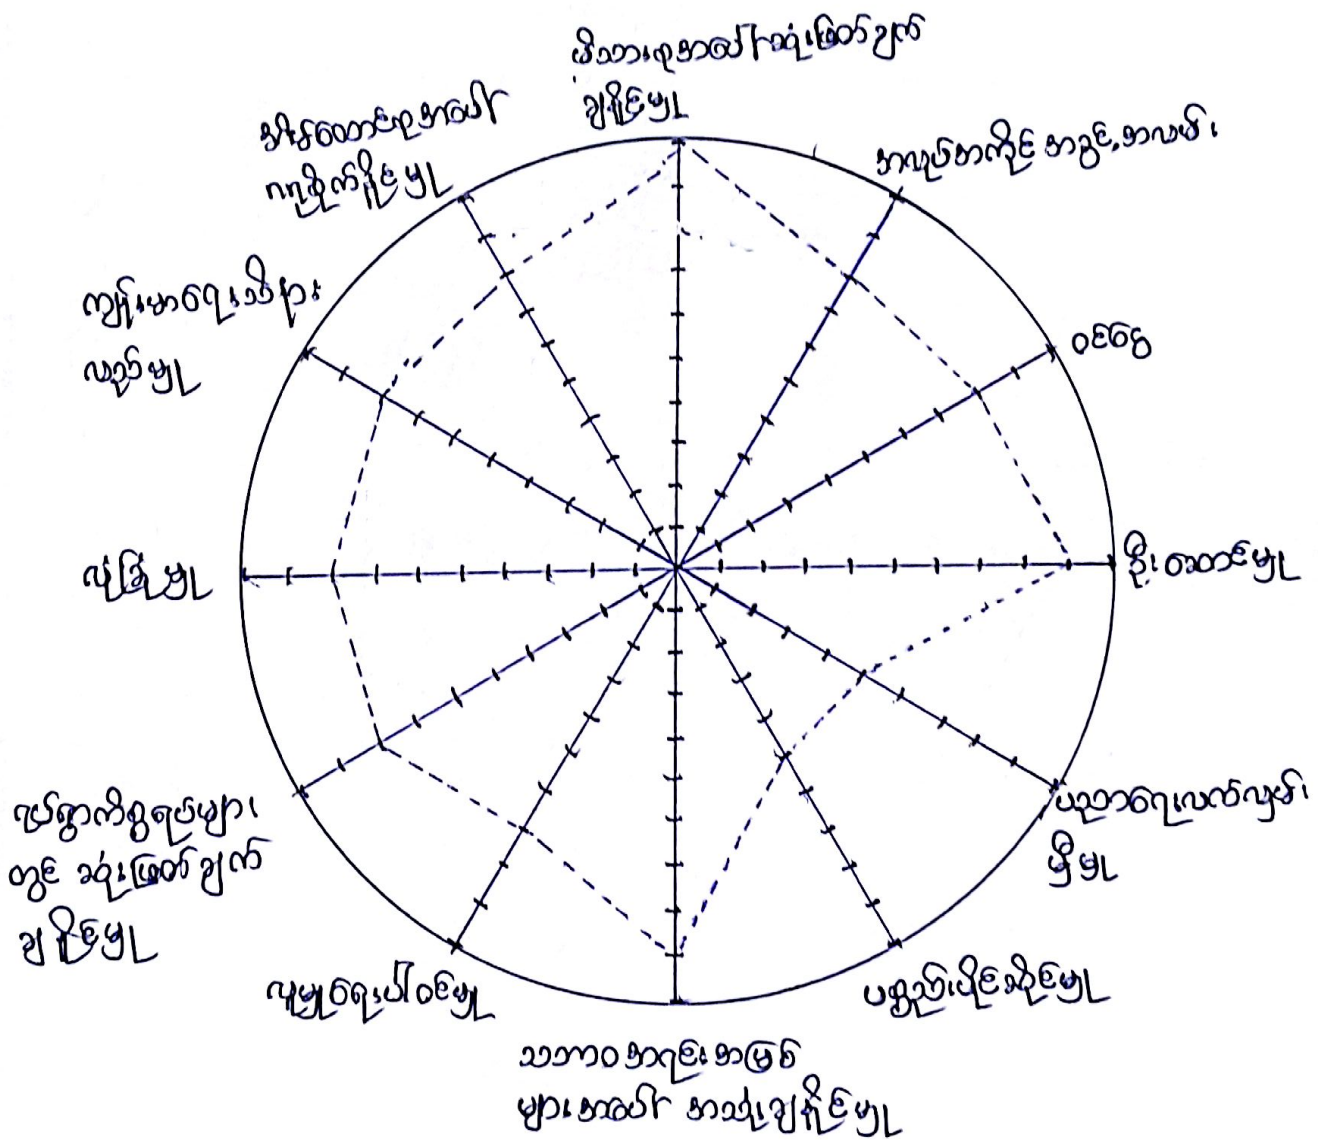 မိသားစုအပေါ်ဆုံးဖြတ်ချက်
ချနိုင်မှု
အလုပ်အကိုင် အခွင့်အလမ်း
ဝင်ငွေ
ဦးဆောင်မှု
ပညာရေးလက်လှမ်း
မှီမှု
ပစ္စည်းပိုင်ဆိုင်မှု
သဘာဝအရင်းအမြစ်
များအပေါ် အသုံးချနိုင်မှု
လူမှုရေးပါဝင်မှု
ရပ်ရွာကိစ္စရပ်များ
တွင် ဆုံးဖြတ်ချက်
ချနိုင်မှု
လုံခြုံမှု
ကျန်းမာရေးသိနား
လည်မှု
အိမ်ထောင်စုအပေါ်
ဂရုစိုက်နိုင်မှု